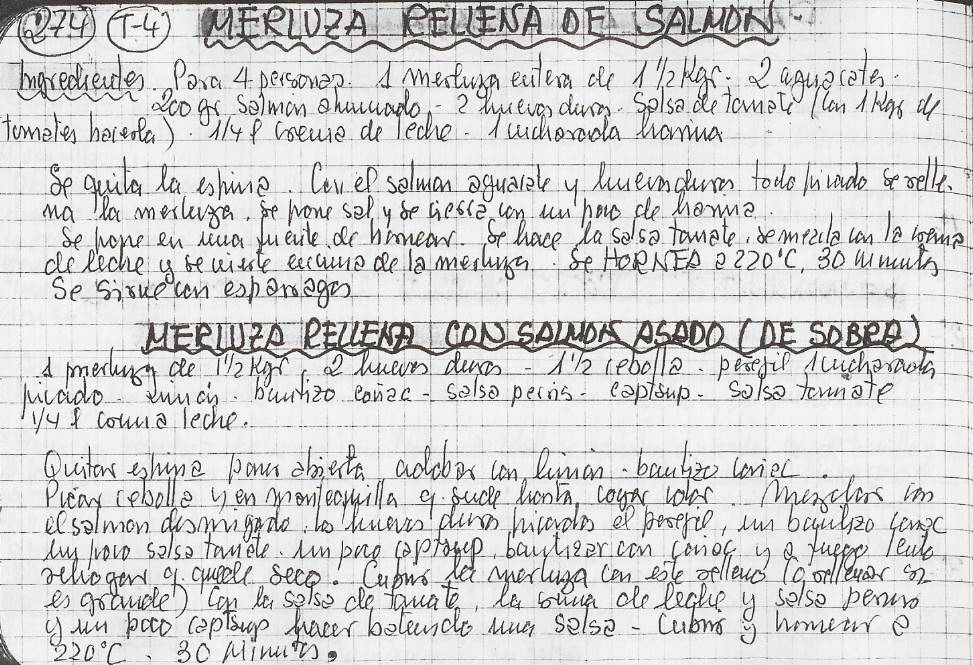 274 T-4 MERLUZA RELLENA DE SALMON
Ingredientes. Para 4 personas. 1 merluza entera de 1 1/2 Kgr. 2 aguacates.
200 gr salmon ahumado - 2 huevos duros. Salsa de tomate (con 1 Kgr de
tomates hacerla). 1/4 l crema de leche. 1 cucharada harina
Se quita la espina. Con el salmon aguacate y huevos duros todo picado se relle-
na la merluza, se pone sal y se cierra con un poco de harina.
Se pone en una fuente de hornear. Se hace la salsa tomate, se mezcla con la crema
de leche y se vierte encima de la merluza. Se HORNEA a 220°C, 30 minutos
Se sirve con esparragos
MERLUZA RELLENA CON SALMON ASADO (DE SOBRA)
1 merluza de 1 1/2 Kgr, 2 huevos duros - 1 1/2 cebolla. perejil 1 cucharada
picado. limón. bautizo coñac - salsa perins - captsup. salsa tomate
1/4 l crema leche.
Quitar espina poner abierta adobar con limón. bautizo coñac.
Picar cebolla y en mantequilla q. sude hasta coger color. Mezclar con
el salmon desmigado, los huevos duros picados el perejil, un bautizo coñac
un poco salsa tomate. un poco captsup, bautizar con coñac y a fuego lento
rehogar q. quede seco. Cubrir la merluza con este relleno (o rellenar si
es grande) Con la salsa de tomate, la crema de leche y salsa perins
y un poco captsup hacer batiendo una salsa - Cubrir y hornear a
220°C. 30 Minutos.